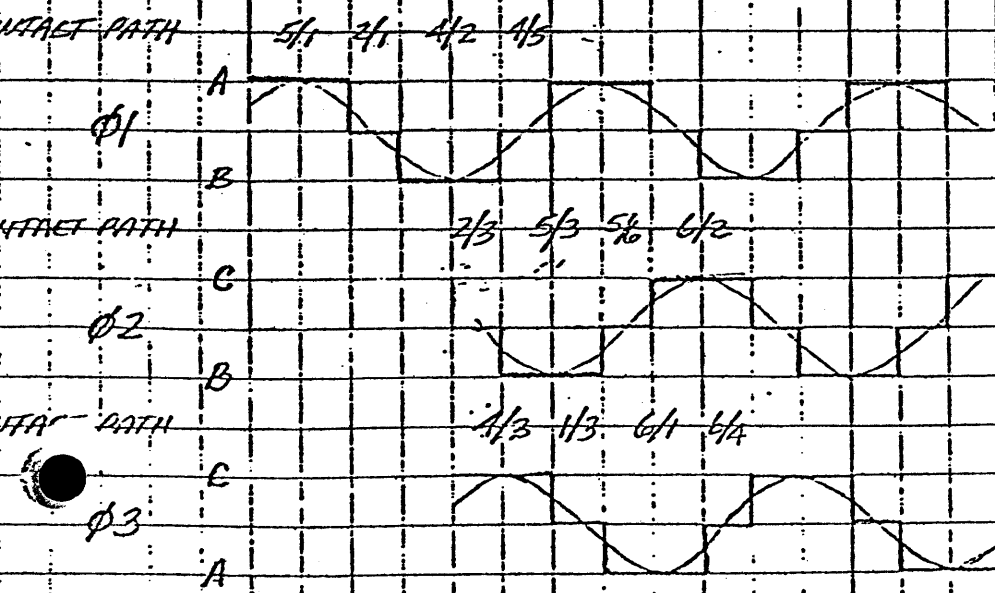 NTACT PATH 5/1 2/1 4/2 4/5
A
φ1
B
NTACT PATH 2/3 5/3 5/6 6/2
C
φ2
B
NTACT PATH 4/3 1/3 6/1 6/4
C
φ3
A